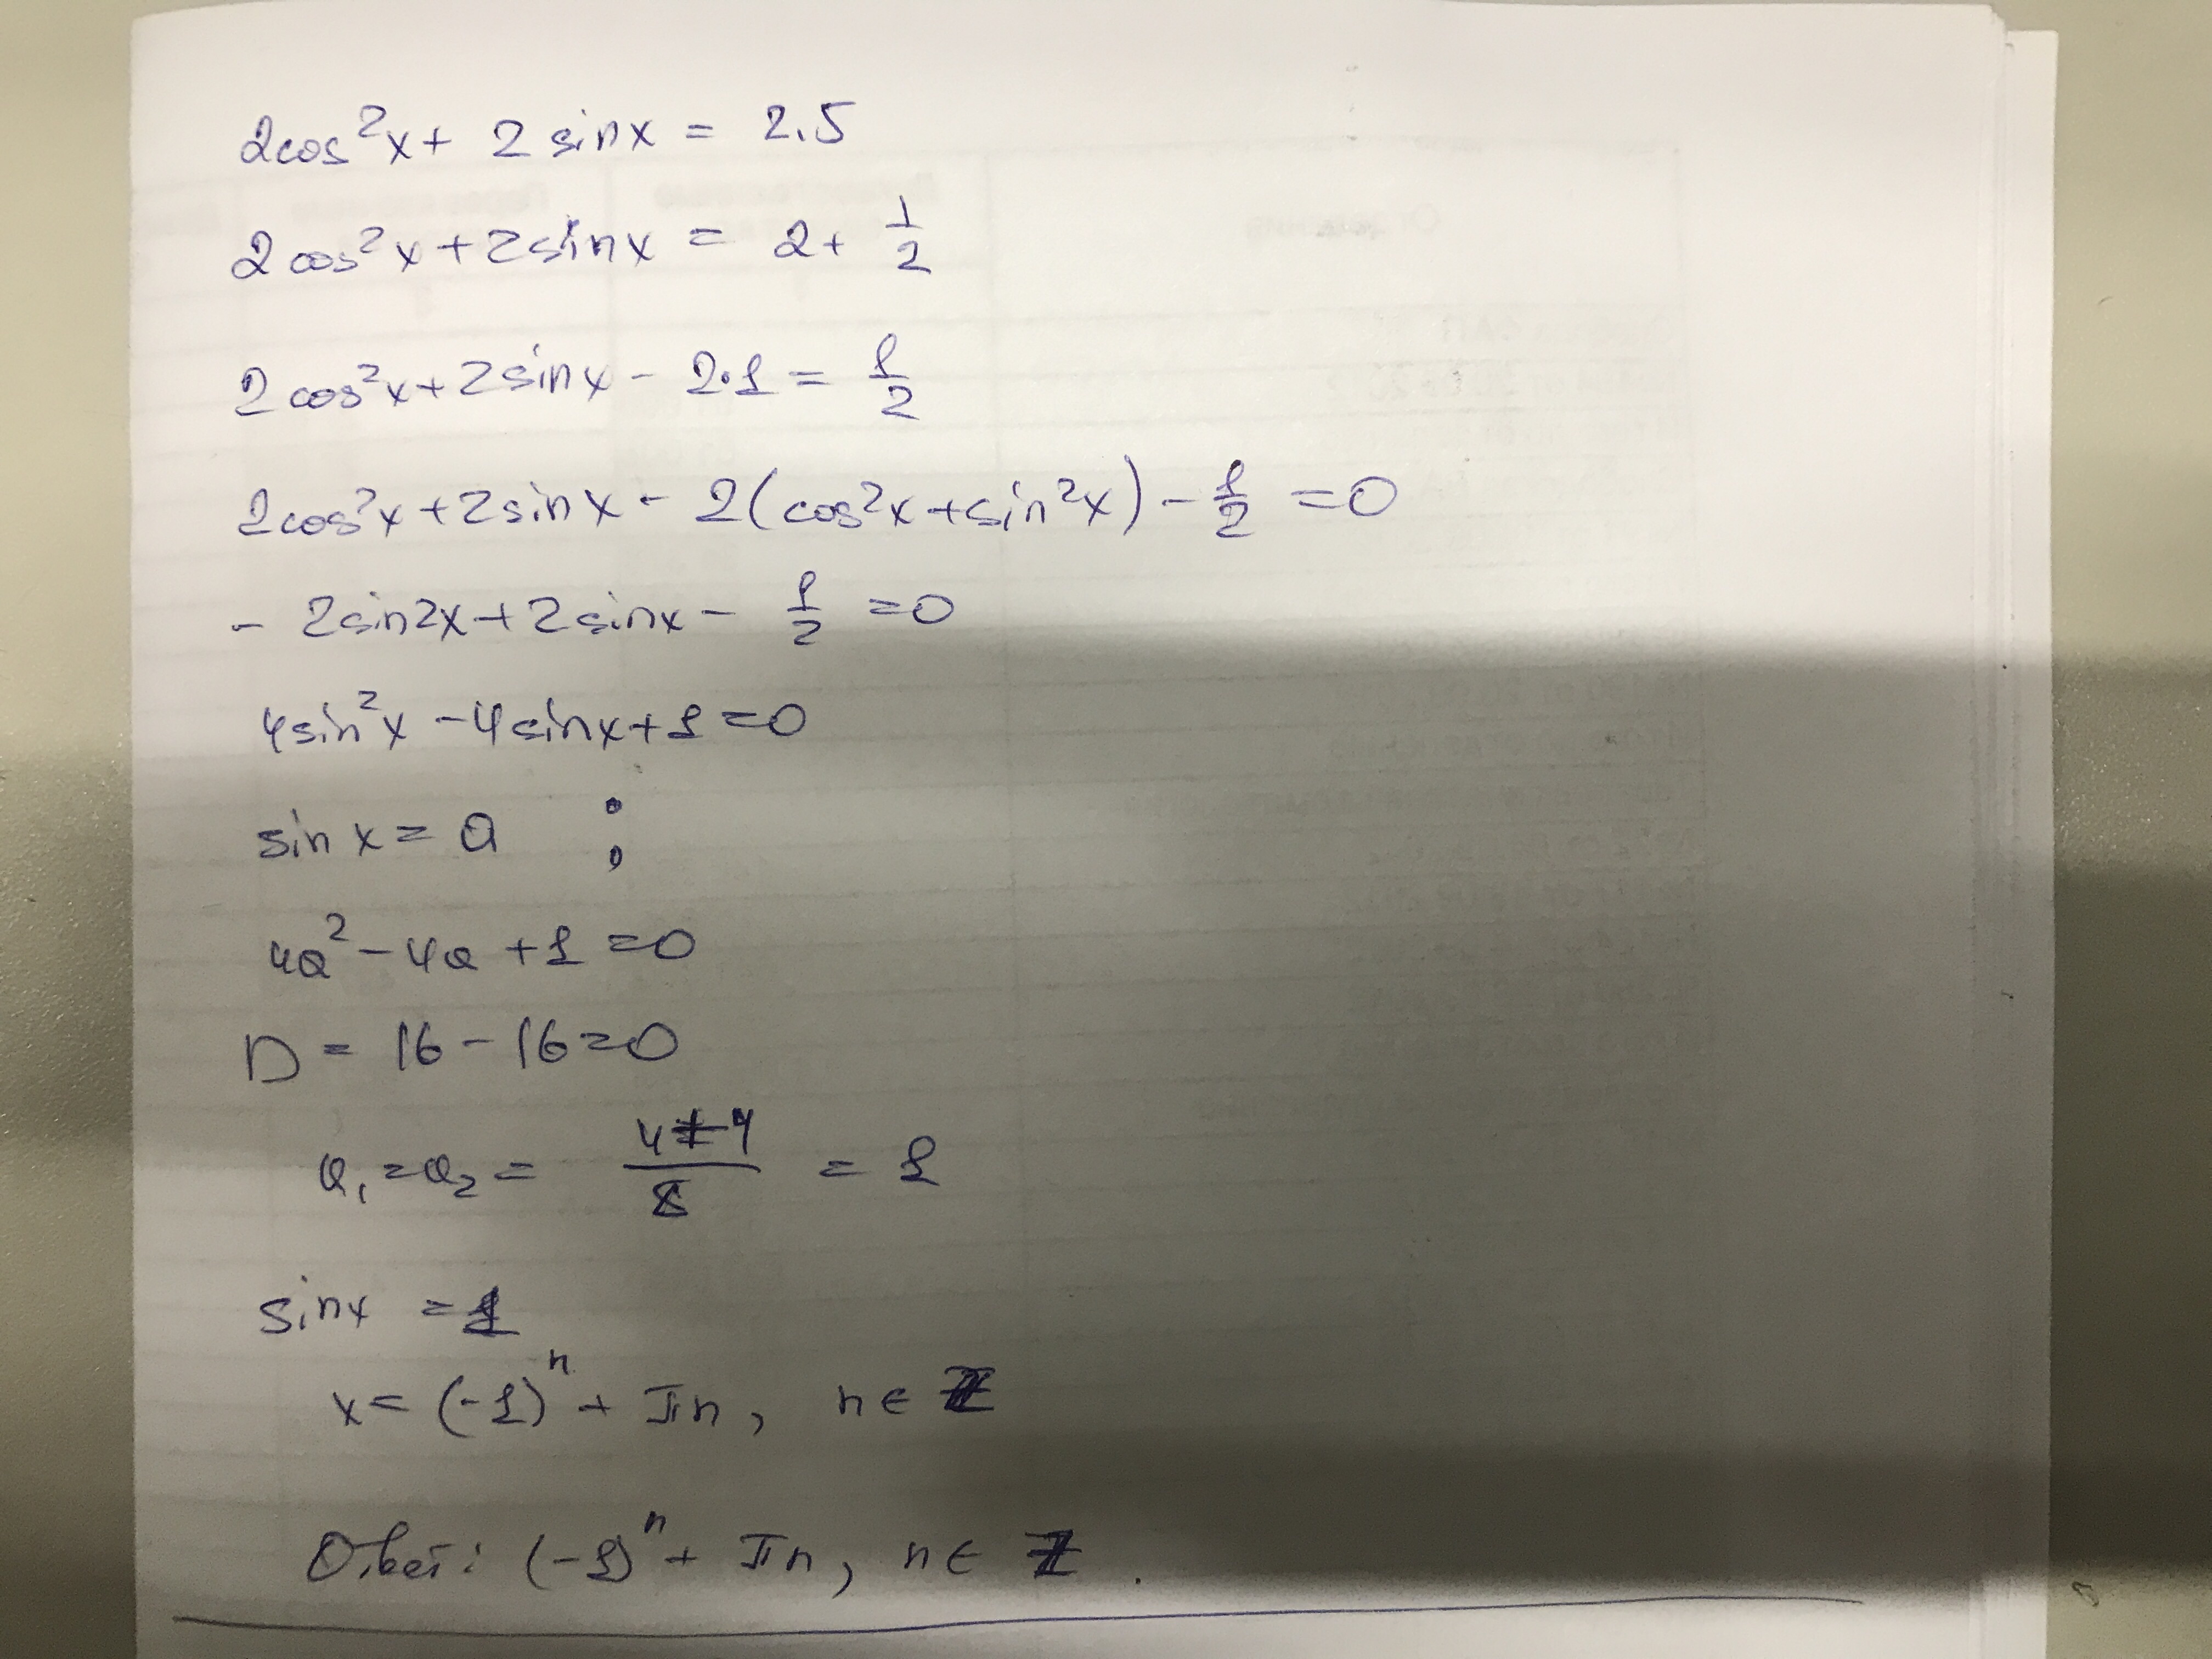 2cos²x + 2 sinx = 2.5
2cos²x + 2sinx = 2 + 1/2
2cos²x + 2sinx - 2·1 = 1/2
2cos²x + 2sinx - 2(cos²x + sin²x) - 1/2 = 0
- 2sin2x + 2sinx - 1/2 = 0
4sin²x - 4sinx + 1 = 0
sin x = a ;
4a² - 4a + 1 = 0
D = 16 - 16 = 0
a₁ = a₂ = (4 + 4)/8 = 1
sinx = 1
x = (-1)ⁿ + πn, n ∈ Z
Ответ: (-1)ⁿ + πn, n ∈ Z.